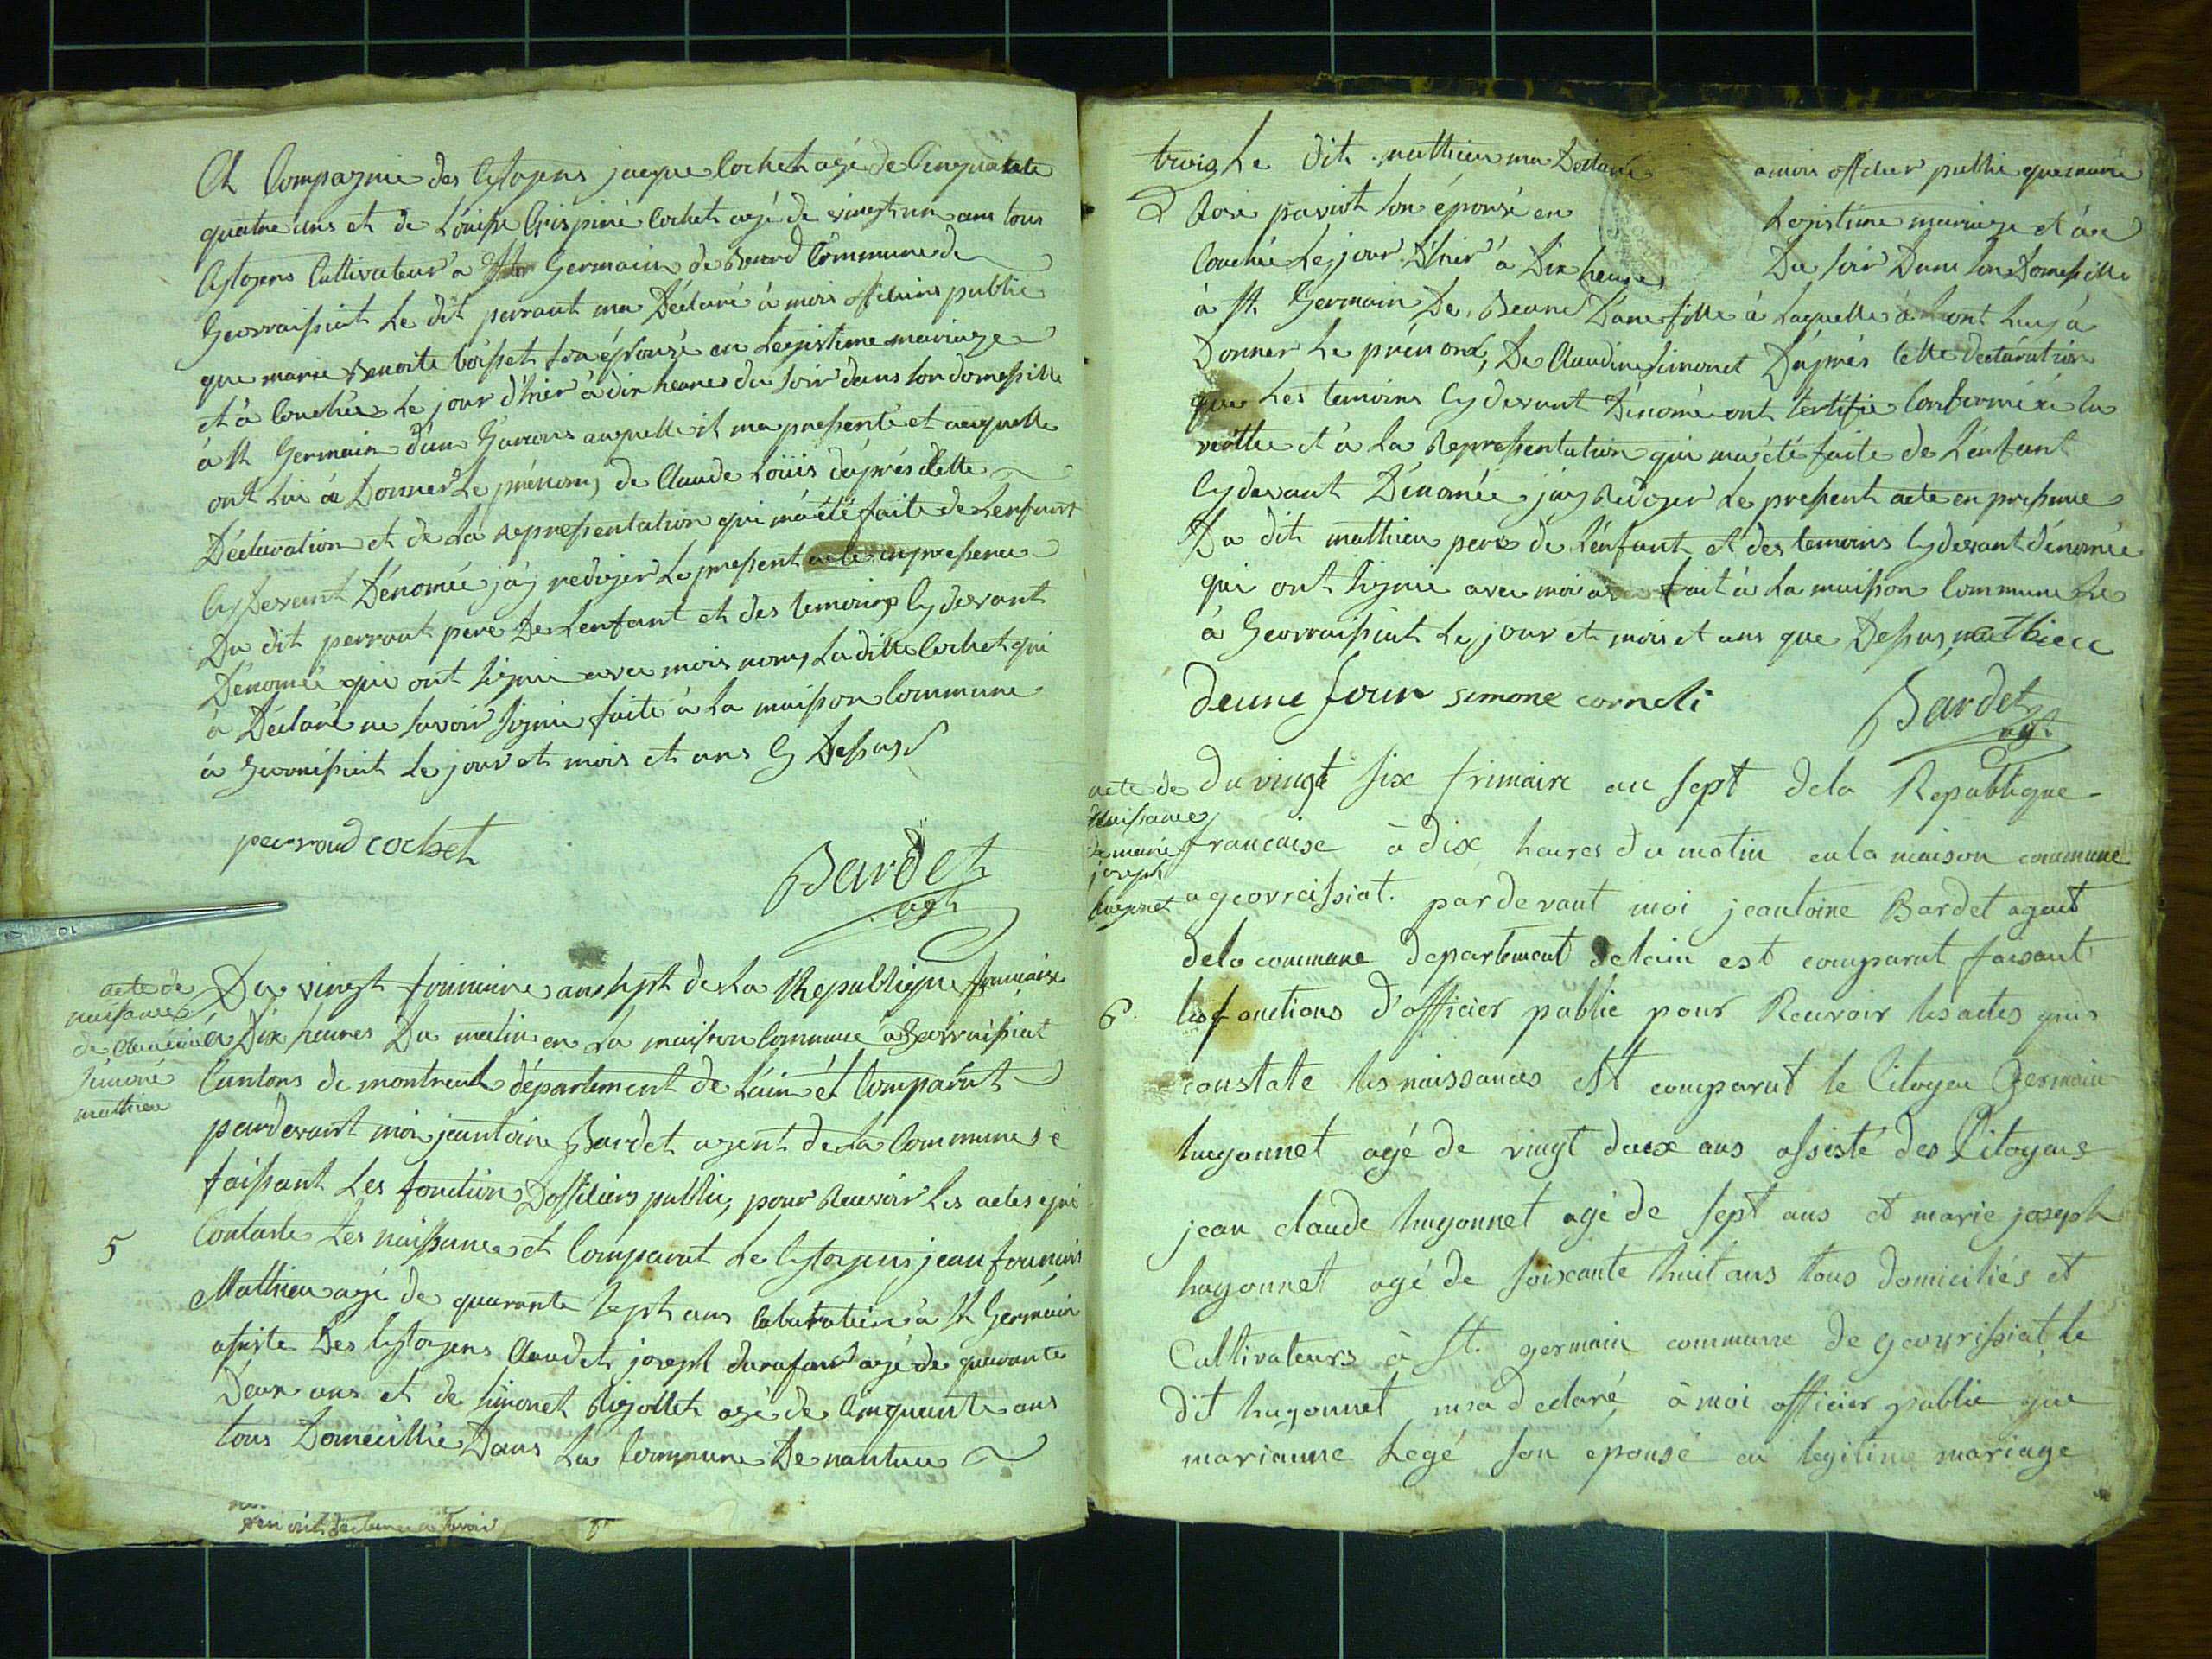 Et Compagnie des Cytoyens jacque Cochet agé de Cinquante
quatre ans et de Louise Crispine Cochet agé de vingt un ans tous
Cytoyens Cultivateur a St Germain de Beard Commune de
Geovraissiat Le dit perraut ma Déclaré à mois officiers public
que marie Benoite boisset son épouzé en Legistime mariage
et à Couchée Le jour d'hier à dix heures du soir dans son domessille
à St Germain d'un Garcons auquelle il ma presenté et auquelle
ont lui a Donner Le prénom, de Claude Loüis d'après Cette
Déclaration et de La representation qui m'a été faite de Lenfant
Cy devant Dénomée j'ay rediger Le present acte en presence
Du dit perraut pere De Lenfant et des temoins Cy devant
Dénomé qui ont signé avec mois nom, La ditte Cochet qui
à Déclaré ne savoir signé faite à La maison Commune
à Geovraissiat Le jour et mois et ans Cy Dessus
perroud cochet
Bardet
agt
acte de
naissance
de Claudine
simoné
mathieu
Du vingt frimaire an sept de La Republique francaise
à Dix heures Du matin en La maison Commune à Geovraissiat
Cantons de montreal département de L'ain et Comparut
pardevant moi jeantoine Bardet agent de La Commune
faissant Les fonction D'officiers public, pour Recevoir Les actes qui
5
Contaste Les naissance et Comparut Le Cytoyens jean francois
Mathieu agé de quarante sept ans à St Germain
assiste Des Cytoyens Claudet joseph durafour agé de quarante
Deux ans et de simonet Rigollet agé de Cinquante ans
tous Domecillié Dans La Commune De nantua
trois Le dit mathieu ma Declaré a mois officier public que marie
Rose paviot son épousé en Legistime mariage et à
Couchée Le jour d'hier à Dix heures Du soir Dans son Domessille
à St Germain De Beard D'une fille à Laquelle ont Luy à
Donner Le prénom, De Claudine simonet D'après Cette declaration
que Les temoins Cy devant Dénomé ont Certifié Conforme à la
veritte et à La Representation qui ma été faite de L'enfant
Cy devant Dénomée jay Rediger Le present acte en presence
Du dit mathieu pere de L'enfant et des temoins Cy devant dénomée
qui ont signé avec moi fait à La maison Commune
à Geovraissiat Le jour et mois et ans que Dessus, mathieu
simone corneli
Bardet
agt
acte de
Naissance
de marie
joseph
hugonnet
Du vingt six frimaire an sept dela Republique
francaise à dix heures du matin en la maison commune
a geovraissiat. pardevant moi jeantoine Bardet agent
dela commune departement delain est comparut faisant
6
les fonctions d'officier public pour Recevoir les actes qui
constate les naissances est comparut le Citoyen Germain
hugonnet agé de vingt deux ans assisté des Citoyens
jean claude hugonnet agé de sept ans et marie joseph
hugonnet agé de soixante huit ans tous domiciliés et
Cultivateurs à St. germain commune de geovrissiat, le
dit hugonnet, ma declaré à moi officier public que
marianne Legé son epousé en legitime mariage